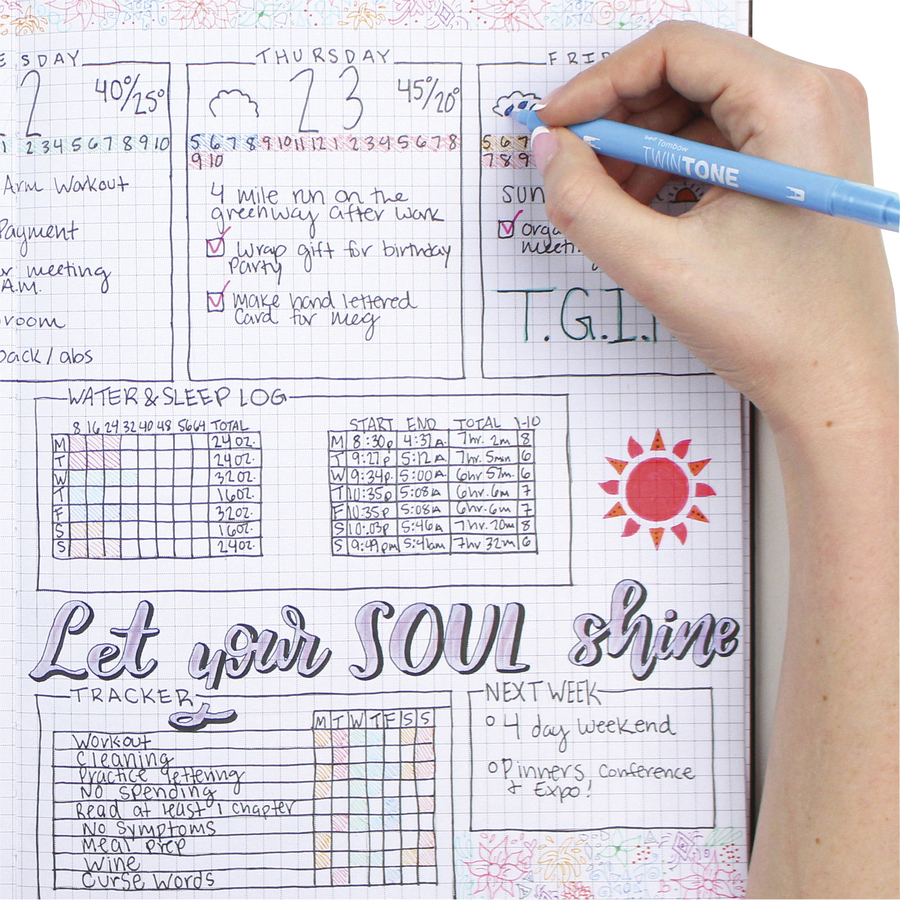 SDAY
2 40°/25°
1 2 3 4 5 6 7 8 9 10
Arm Workout
Payment
meeting
A.M.
room
back/abs
THURSDAY
23 45°/20°
5 6 7 8 9 10 11 12 1 2 3 4 5 6 7 8
9 10
4 mile run on the
greenway after work
Wrap gift for birthday
party
Make hand lettered
card for meg
FRI
5 6 7
7 8 9
SUN
meeti
T.G.I.
Tombow
TWINTONE
WATER & SLEEP LOG
8 16 24 32 40 48 56 64 TOTAL
M 24 oz.
T 24 oz.
W 32 oz.
T 16 oz.
F 32 oz.
S 16 oz.
S 24 oz.
START END TOTAL 1-10
M 8:30p 4:32A 7hr. 2m 8
T 9:27p 5:12A 7hr. 5min 6
W 9:34p 5:00A 6hr 57m. 6
T 10:35p 5:08A 6hr. 6m 7
F 10:35p 5:08A 6hr. 6m 7
S 10:03p 5:46A 7hr. 20m 8
S 9:49pm 5:41am 7hr 32m 6
Let your SOUL shine
TRACKER
M T W T F S S
Workout
Cleaning
Practice lettering
No spending
Read at least 1 chapter
No Symptoms
Meal prep
Wine
Curse Words
NEXT WEEK
4 day weekend
Pinners Conference
& Expo!